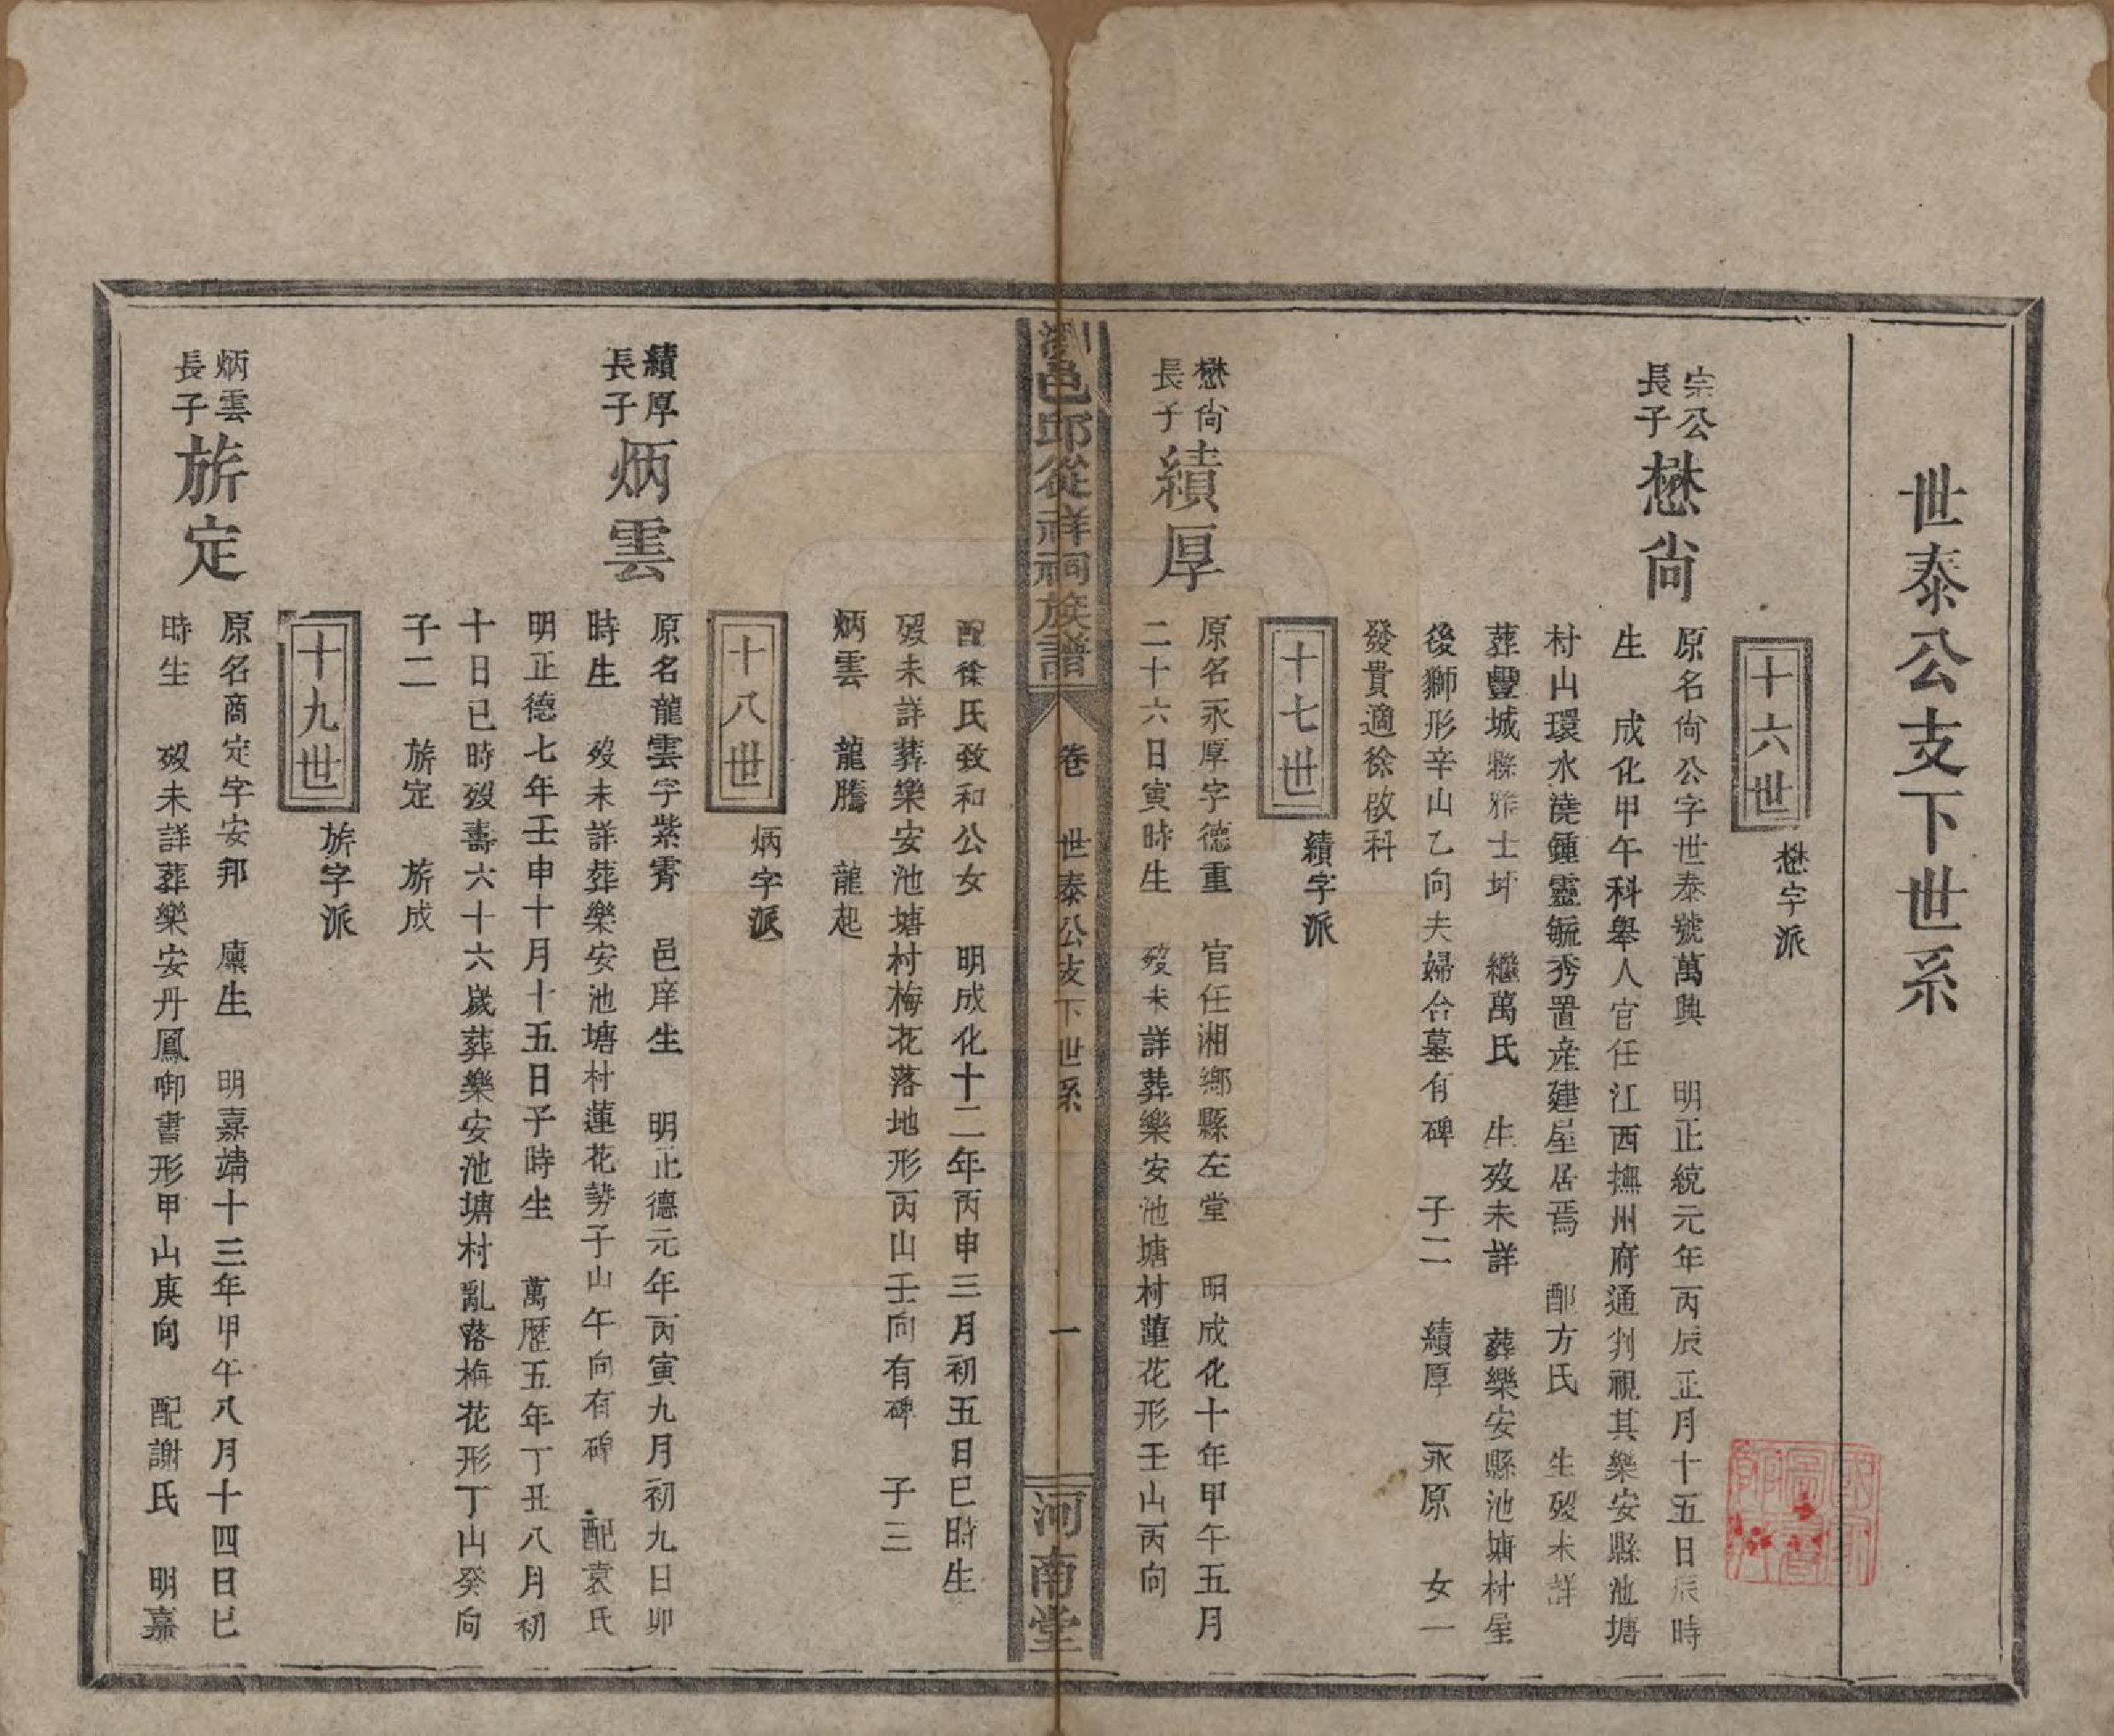 世泰公支下世系
十六世
懋字派
宗公
長子
懋尙
原名尙公字世泰號萬興　明正統元年丙辰正月十五日辰時
生　成化甲午科舉人官任江西撫州府通判視其樂安縣池塘
村山環水澆鍾靈毓秀置產建屋居焉　配方氏　生歿未詳
葬豐城縣雅士坪　繼萬氏　生歿未詳　葬樂安縣池塘村屋
後獅形辛山乙向夫婦合墓有碑　子二　績厚　永原　女一
發貴適徐啟科
十七世
績字派
懋尙
長子
績厚
原名永厚字德重　官任湘鄉縣左堂　明成化十年甲午五月
二十六日寅時生　歿未詳葬樂安池塘村蓮花形壬山丙向
瀏邑邱從祥祠族譜
卷　世泰公支下世系
一
河南堂
配徐氏致和公女　明成化十二年丙申三月初五日巳時生
歿未詳葬樂安池塘村梅花落地形丙山壬向有碑　子三
炳雲　龍騰　龍起
十八世
炳字派
績厚
長子
炳雲
原名龍雲字紫霄　邑庠生　明正德元年丙寅九月初九日卯
時生　歿未詳葬樂安池塘村蓮花勢子山午向有碑　配袁氏
明正德七年壬申十月十五日子時生　萬歷五年丁丑八月初
十日巳時歿壽六十六歲葬樂安池塘村亂落梅花形丁山癸向
子二　旂定　旂成
十九世
旂字派
炳雲
長子
旂定
原名商定字安邦　廩生　明嘉靖十三年甲午八月十四日巳
時生　歿未詳葬樂安丹鳳啣書形甲山庚向　配謝氏　明嘉